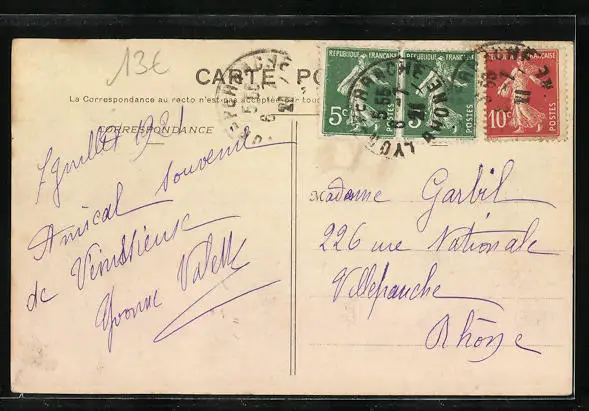 13€
CARTE PO
La Correspondance au recto n'est pas acceptée par tous
CORRESPONDANCE
7 juillet 1921
Amical souvenir
de Vénissieux
Yvonne Valette
REPUBLIQUE FRANÇAISE
5c
POSTES
REPUBLIQUE FRANÇAISE
POSTES
10c
POSTES
LYON PERRACHE
RHONE
Madame Garbil
226 rue Nationale
Villefranche
Rhône